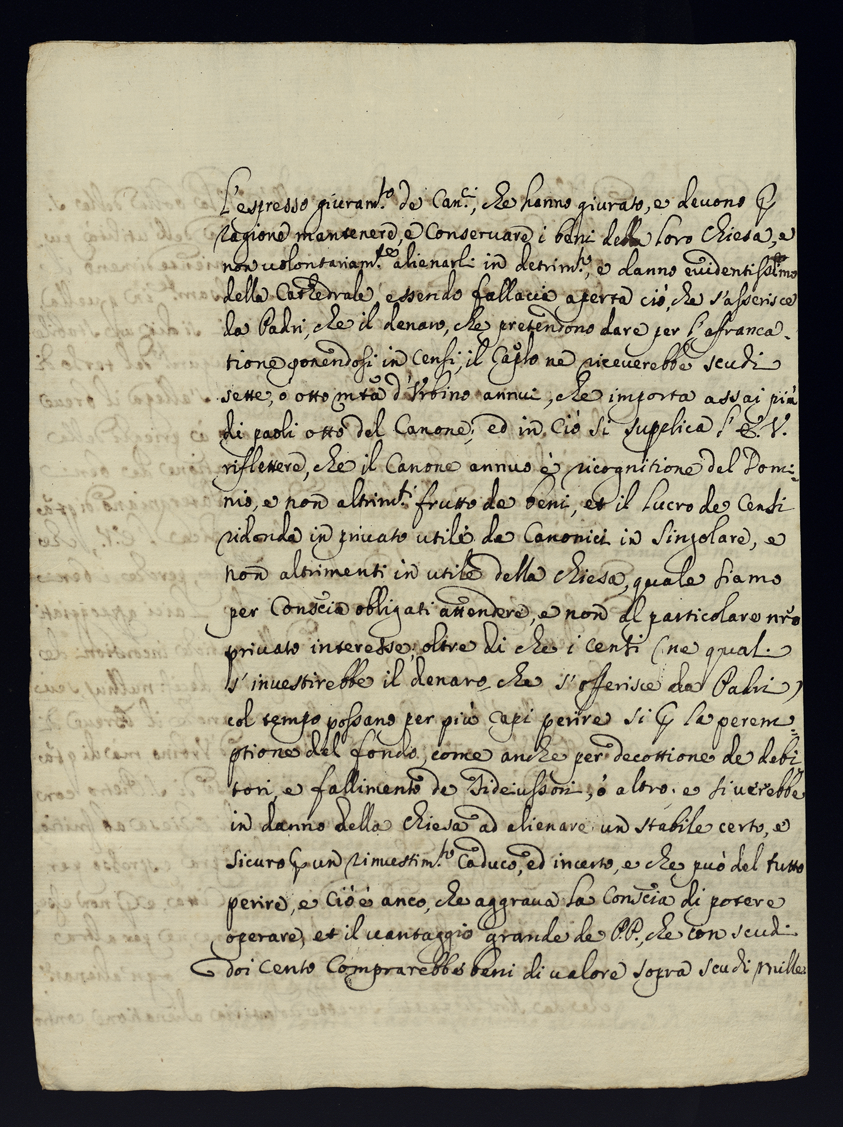 L'espresso giuram.to de Can.ci, che hanno giurato, e devono p
ragione mantenere, e Conservare i beni della loro Chiesa, e
non volontariam.te alienarli in detrim.to, e danno evidentissimo
della Cathedrale, essendo fallacia aperta ciò, che s'asserisce
da Padri, che il denaro, che pretendono dare per l'afranca-
tione ponendosi in Censi, il Caplo ne riceverebbe scudi
sette, o otto mta d'Urbino annui, che importa assai più
di paoli otto del Canone; ed in Ciò si supplica l'E. V.
riflettere, che il Canone annuo è ricognitione del Domi=
nio, e non altrim.ti frutto de beni, et il lucro de Censi
ridonda in privato utile de Canonici in singolare, e
non altrimenti in utile della Chiesa, quale siamo
per Conscia obligati attendere, e non al particolare nro
privato interesse; oltre di che i censi (ne quali
s'investirebbe il denaro, che s'offerisce da Padri)
col tempo possano per più capi perire si p la perem=
ptione del fondo, come anche per decottione de debi
tori, e fallimento de sideiussori, ò altro. e si verebbe
in danno della Chiesa ad alienare un stabile certo, e
sicuro p un rinvestim.to Caduco, ed incerto, e che può del tutto
perire, e Ciò è anco, che aggrava la Conscia di potere
operare, et il vantaggio grande de PP. che con scudi
doi cento Comprarebbe beni di valore sopra scudi mille